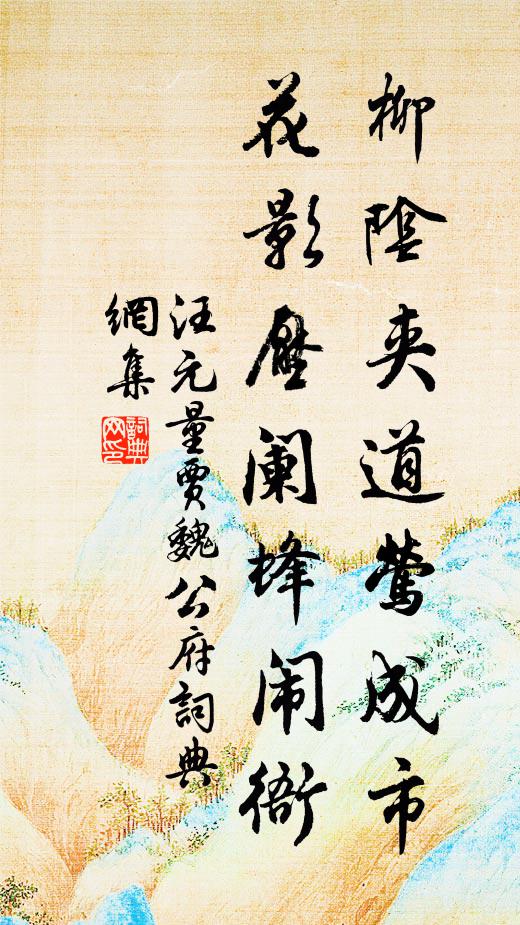 柳陰夾道莺成市
花影壓阑蜂闹衙
汪元量賈魏公府詞典
網集
詞典網印